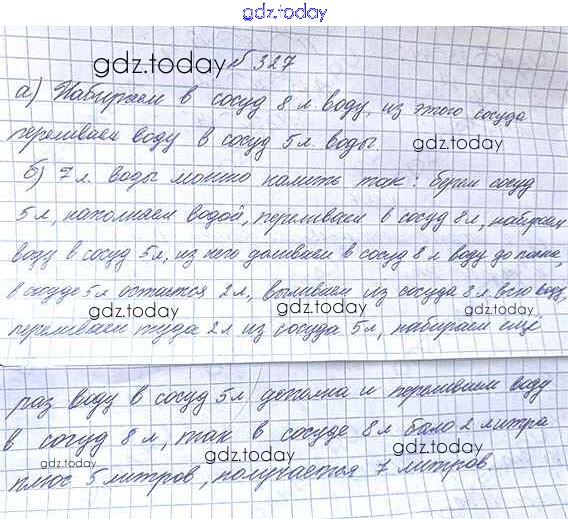 gdz.today
gdz.today № 327
а) Набираем в сосуд 8 л воду, из этого сосуда
переливаем воду в сосуд 5 л воды. gdz.today
б) 7 л. воды можно налить так: берем сосуд
5 л, наполняем водой, переливаем в сосуд 8 л, набираем
воду в сосуд 5 л, из него доливаем в сосуд 8 л воду до полна,
в сосуде 5 л остается 2 л, выливаем из сосуда 8 л всю воду,
gdz.today gdz.today gdz.today
переливаем туда 2 л из сосуда 5 л, набираем ещё
раз воду в сосуд 5 л дополна и переливаем воду
в сосуд 8 л, так в сосуде 8 л было 2 литра
gdz.today gdz.today gdz.today
плюс 5 литров, получается 7 литров